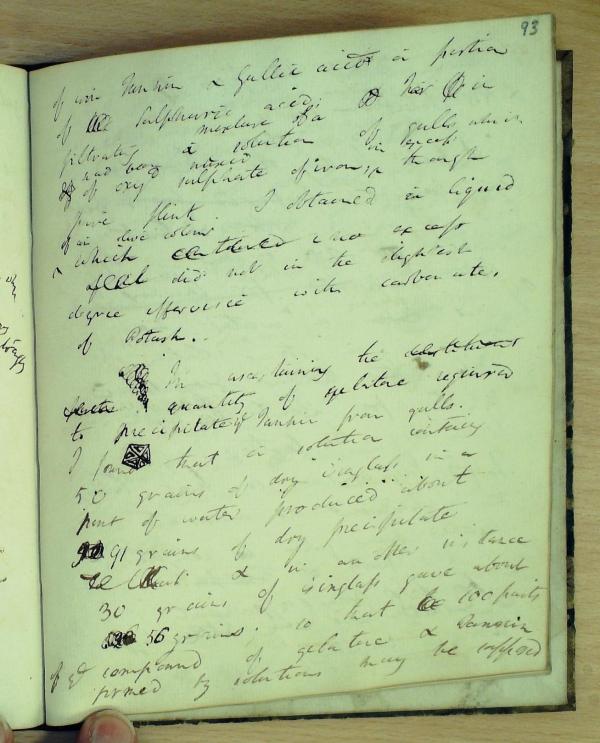 93
of iron Tannin & Gallic acid a portion
of Sulphuric acid; For in
filtrating a mixture of a
and been mixed solution of galls which
of oxy sulphate of iron in excess
through
fine flint. I obtained a liquid
of an olive colour
which contained no excess
did not in the slightest
degree effervesce with carbonate,
of Potash..
In ascertaining the
quantity of gelatine required
to precipitate Tannin from galls.
I found that a solution containing
50 grains of dry isinglass in a
pint of water produced about
91 grains of dry precipitate
& in another instance
30 grains of isinglass gave about
56 grains. so that 100 parts
of ye compound of gelatine & Tannin
formed by solutions may be supposed